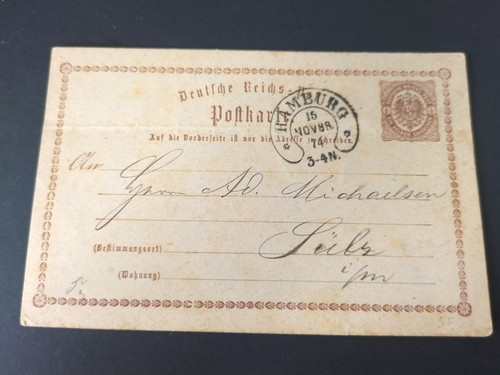 Deutsche Reichs-
Postkar
HAMBURG
15
NOVBR
74
3-4N.
Auf die Vorderseite ist nur die Adresse zu schreiben
An
Herrn Ad. Michaelsen
(Bestimmungsort)
Sülz
i/m
(Wohnung)